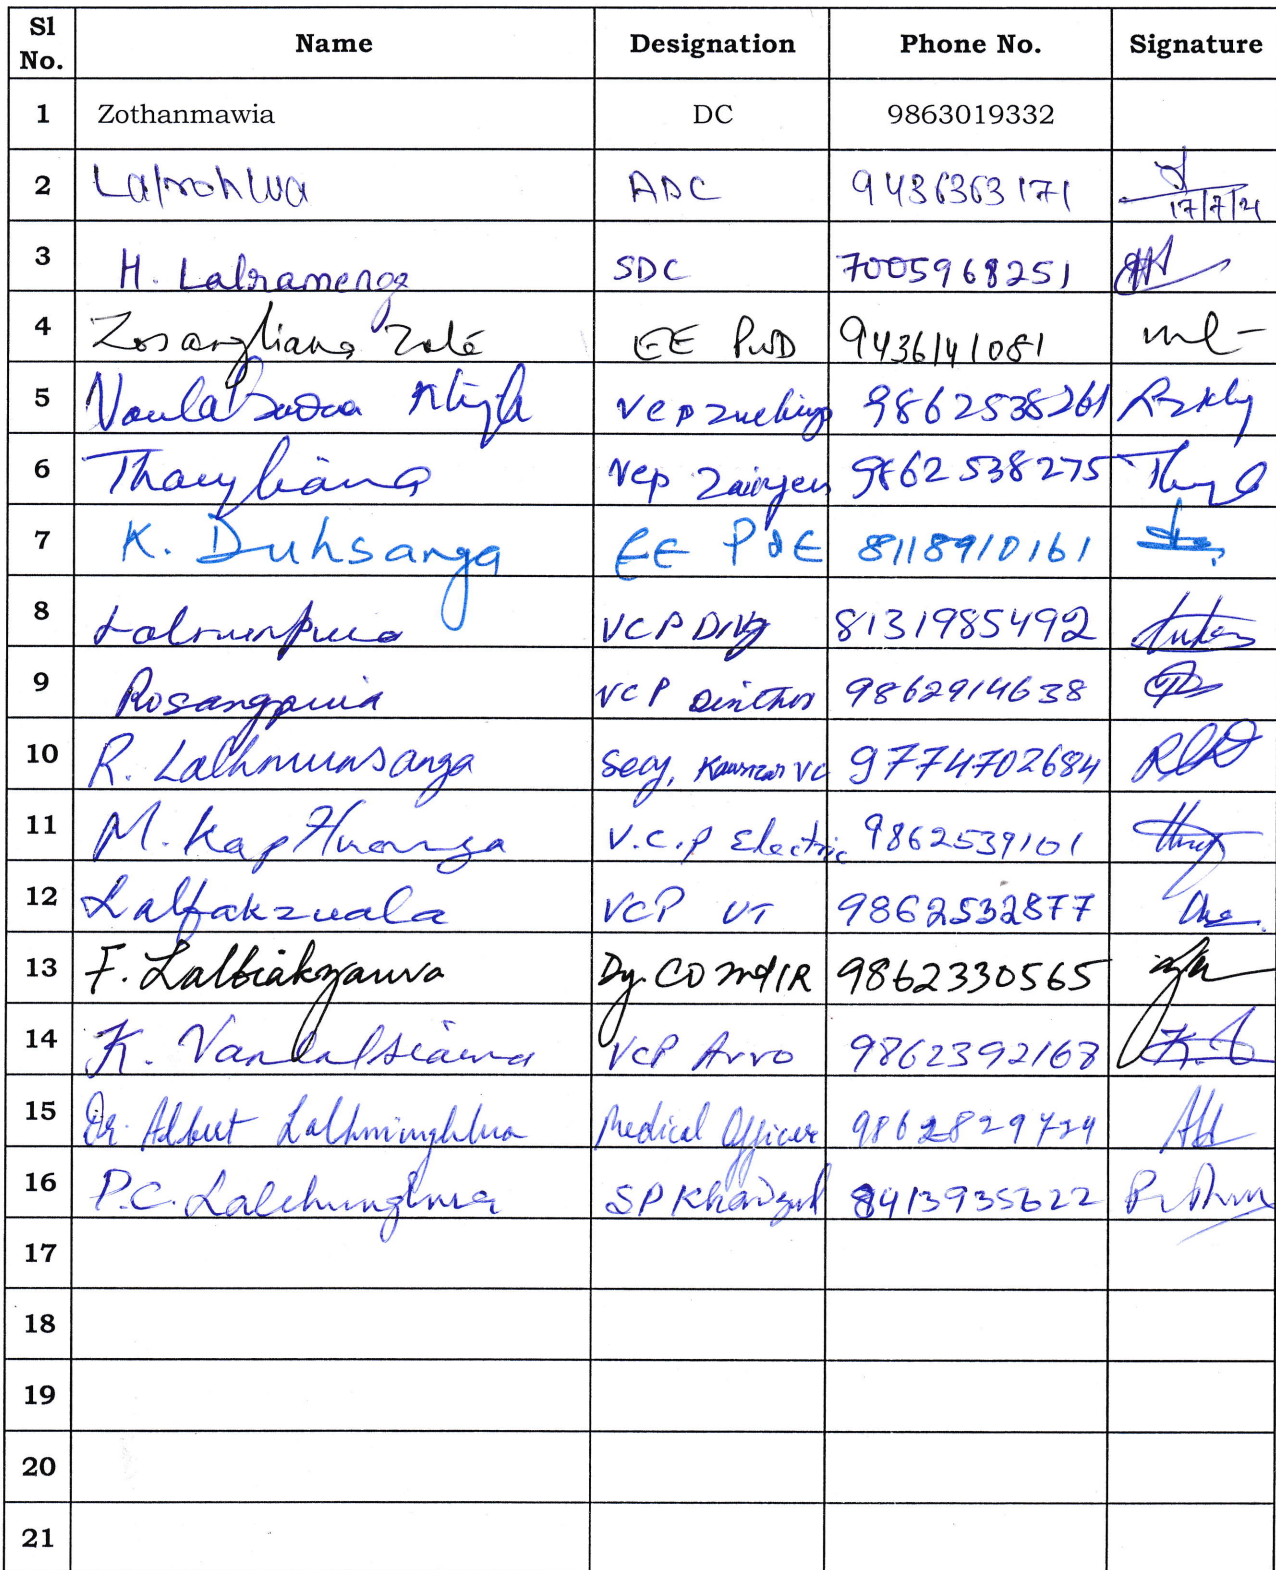 Sl No. Name Designation Phone No. Signature
1 Zothanmawia DC 9863019332
2 Lalrohlua ADC 9436363171 17/7/21
3 H. Lalramenga SDC 7005968251
4 Zosangliana Zote EE PWD 9436141081
5 VCP 9862538261
6 Thangliana VCP 9862538275
7 K. Duhsanga EE P&E 8118910161
8 VCP 8131985492
9 Rosangpuia VCP Dinthar 9862914638
10 R. Lalhmunsanga Secy, VC 9774702684
11 M. Kap Huanga V.C.P Electric 9862539101
12 Lalfakzuala VCP VT 9862532877
13 F. Lalbiakzauva Dy. CO 9862330565
14 K. VCP Arro 9862392168
15 Dr. Albert Lalhminghlua Medical Officer
16 P.C. Lalchungnunga SP Khawzawl 8413935622
17
18
19
20
21